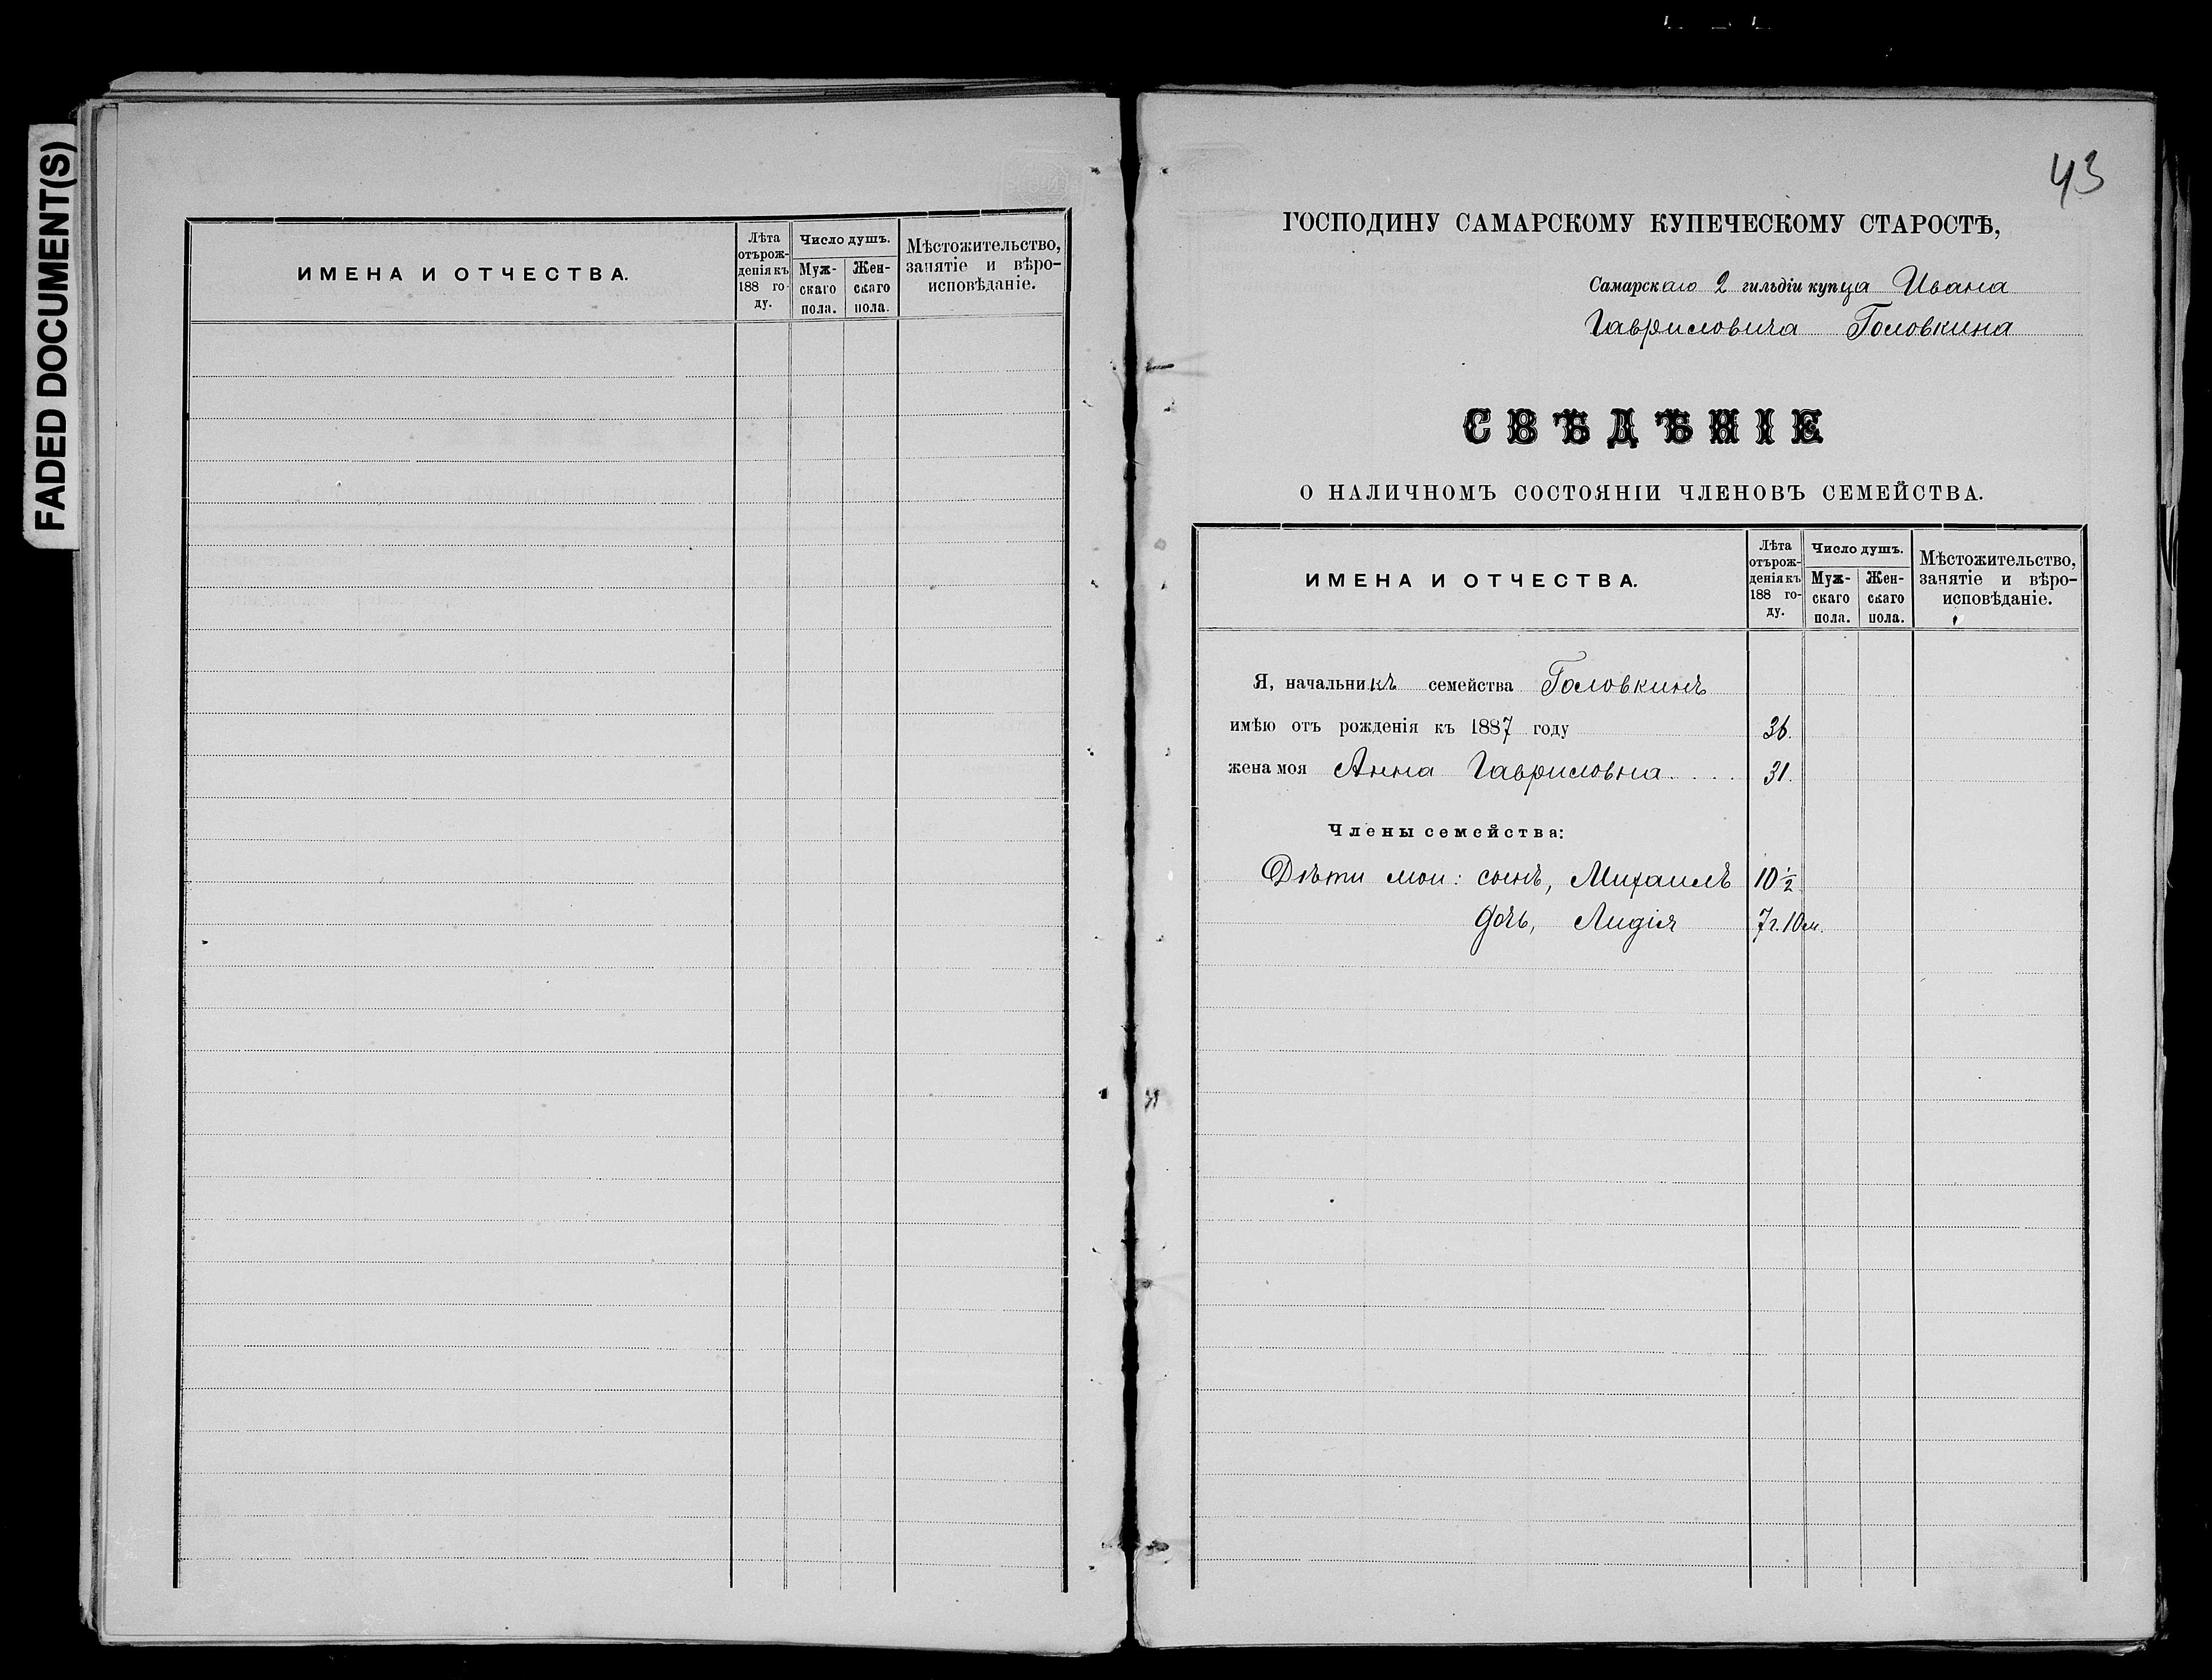 FADED DOCUMENT(S)
ИМЕНА И ОТЧЕСТВА.
Лѣта
отъ рож-
денія къ
188 го-
ду.
Число душъ.
Муж-
скаго
пола.
Жен-
скаго
пола.
Мѣстожительство,
занятіе и вѣро-
исповѣданіе.
43
ГОСПОДИНУ САМАРСКОМУ КУПЕЧЕСКОМУ СТАРОСТѢ,
Самарскаго 2 гильдіи купца Ивана
Гавриловича Головкина
СВѢДѢНІЕ
О НАЛИЧНОМЪ СОСТОЯНІИ ЧЛЕНОВЪ СЕМЕЙСТВА.
ИМЕНА И ОТЧЕСТВА.
Лѣта
отъ рож-
денія къ
188 го-
ду.
Число душъ.
Муж-
скаго
пола.
Жен-
скаго
пола.
Мѣстожительство,
занятіе и вѣро-
исповѣданіе.
Я, начальникъ семейства Головкинъ
имѣю отъ рожденія къ 1887 году 36.
жена моя Анна Гавриловна. . . . 31.
Члены семейства:
Дѣти мои: сынъ, Михаилъ 10 1/2
дочь, Лидія 7 г. 10 м.